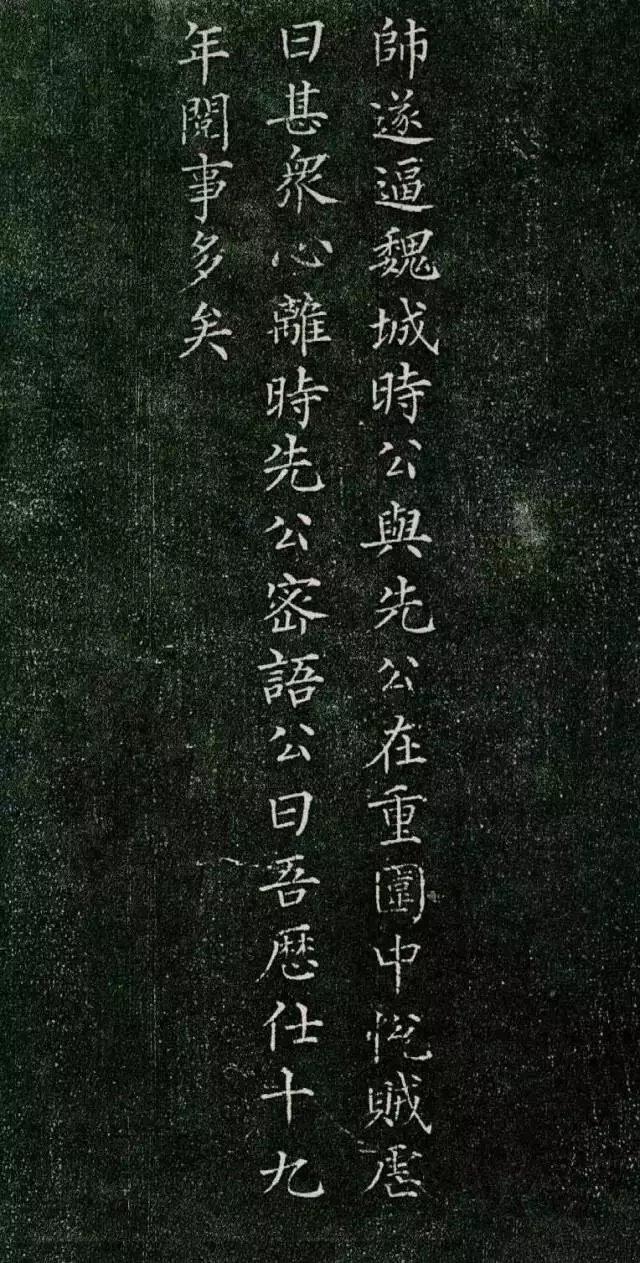 師遂逼魏城時公與先公在重圍中悅賊虐
日甚衆心離時先公密語公曰吾歷仕十九
年閱事多矣